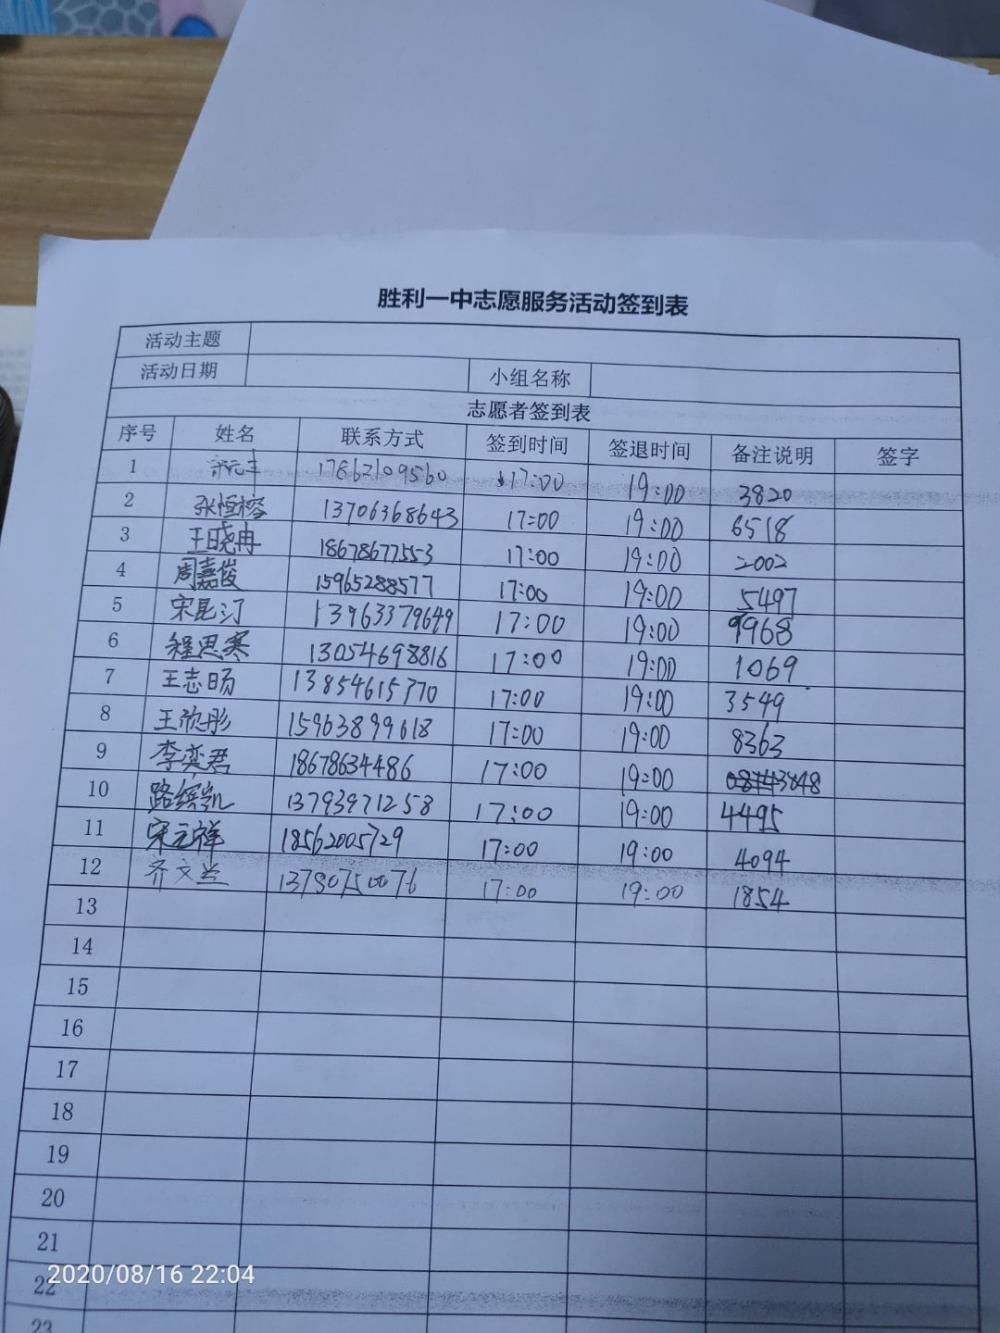 胜利一中志愿服务活动签到表
活动主题
活动日期 小组名称
志愿者签到表
序号 姓名 联系方式 签到时间 签退时间 备注说明 签字
1 17862109560 17:00 19:00 3820
2 张恒榕 13706368643 17:00 19:00 6518
3 王晓冉 18678677553 17:00 19:00 2002
4 周嘉俊 15965288577 17:00 19:00 5497
5 宋昆汀 13963379649 17:00 19:00 9968
6 程思寒 13054698816 17:00 19:00 1069
7 王志旸 13854615770 17:00 19:00 3549
8 王欣彤 15963899618 17:00 19:00 8363
9 李奕君 18678634486 17:00 19:00 3048
10 路缤凯 13793971258 17:00 19:00 4495
11 宋元祥 18562005729 17:00 19:00 4094
12 齐文兰 13780750076 17:00 19:00 1854
13
14
15
16
17
18
19
20
21
22
23
2020/08/16 22:04